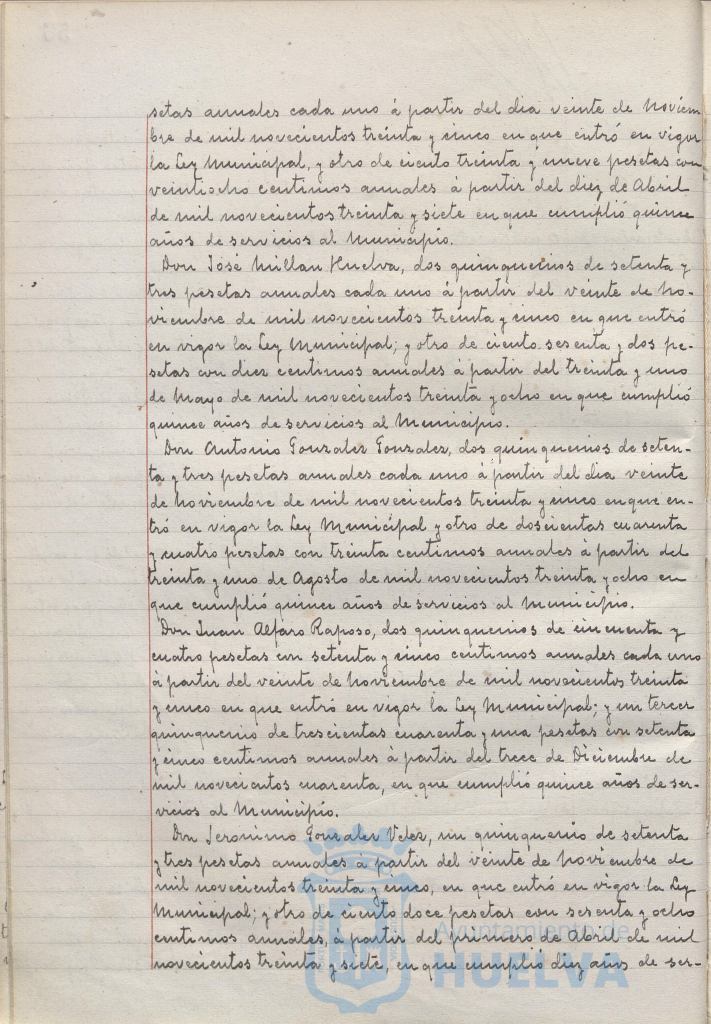 setas annuales cada uno á partir del dia veinte de Noviem
bre de mil novecientos treinta y cinco en que entró en vigor
la Ley Municipal, y otro de ciento treinta y nueve pesetas con
veintiocho centimos annales á partir del diez de Abril
de mil novecientos treinta y siete en que cumplió quince
años de servicios al Municipio.
Don José Millan Huelva, dos quinquenios de setenta y
tres pesetas annales cada uno á partir del veinte de No-
viembre de mil novecientos treinta y cinco en que entró
en vigor la Ley Municipal; y otro de ciento sesenta y dos pe-
setas con diez centimos annales á partir del treinta y uno
de Mayo de mil novecientos treinta y ocho en que cumplió
quince años de servicios al Municipio.
Don Antonio Gonzalez Gonzalez, dos quinquenios de seten-
ta y tres pesetas annales cada uno á partir del dia veinte
de Noviembre de mil novecientos treinta y cinco en que en-
tró en vigor la Ley Municipal y otro de doscientas cuarenta
y cuatro pesetas con treinta centimos annales á partir del
treinta y uno de Agosto de mil novecientos treinta y ocho en
que cumplió quince años de servicios al Municipio.
Don Juan Alfaro Raposo, dos quinquenios de cincuenta y
cuatro pesetas con setenta y cinco centimos annales cada uno
á partir del veinte de Noviembre de mil novecientos treinta
y cinco en que entró en vigor la Ley Municipal; y un tercer
quinquenio de trescientas cuarenta y una pesetas con setenta
y cinco centimos annales á partir del trece de Diciembre de
mil novecientos cuarenta, en que cumplió quince años de ser-
vicios al Municipio.
Don Jeronimo Gonzalez Velez, un quinquenio de setenta
y tres pesetas annales á partir del veinte de Noviembre de
mil novecientos treinta y cinco, en que entró en vigor la Ley
Municipal; y otro de ciento doce pesetas con sesenta y ocho
centimos annales, á partir del primero de Abril de mil
novecientos treinta y siete, en que cumplio diez años de ser-
Ayuntamiento de
HUELVA